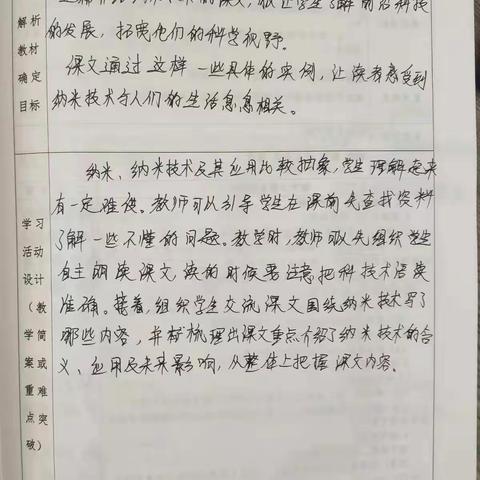 解析
教材
确定
目标
的发展，拓宽他们的科学视野。
课文通过这样一些具体的实例，让读者感受到
纳米技术与人们的生活息息相关。
学习
活动
设计
（教
学简
案或
重难
点突
破）
纳米、纳米技术及其应用比较抽象，学生理解起来
有一定难度。教师可以引导学生在课前先查找资料
了解一些不懂的问题。教学时，教师可以先组织学生
自主朗读课文，读的时候要注意把科技术语读
准确。接着，组织学生交流课文围绕纳米技术写了
哪些内容，并梳理出课文重点介绍了纳米技术的含
义、应用及未来影响，从整体上把握课文内容。